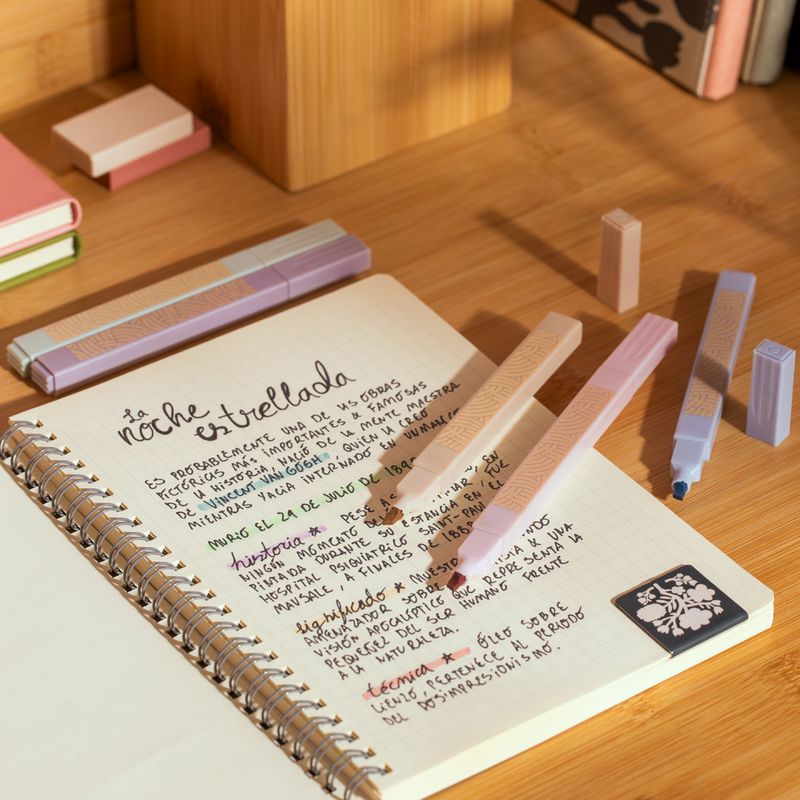 La
noche
estrellada
ES PROBABLEMENTE UNA DE US OBRAS
PICTÓRICAS MÁS IMPORTANTES & FAMOSAS
DE LA HISTORIA, NACIÓ DE LA MENTE MAESTRA
DE VINCENT VAN GOGH, QUIEN LA CREÓ
MIENTRAS YACIA INTERNADO EN UN
MURIÓ EL 29 DE JULIO DE 1890
historia ★ PESE A EN
NINGÚN MOMENTO FUE
PINTADA DURANTE SU ESTANCIA EN EL
HOSPITAL PSIQUIATRICO SAINT-PAUL
MAUSALE, A FINALES DE 1889
significado ★
AMENAZADOR SOBRE DE UNA
VISIÓN APOCALÍPTICO QUE REPRESENTA LA
PEQUEÑEZ DEL SER HUMANO FRENTE
A LA NATURALEZA.
técnica ★ ÓLEO SOBRE
LIENZO, PERTENECE AL PERIODO
DEL POSIMPRESIONISMO.